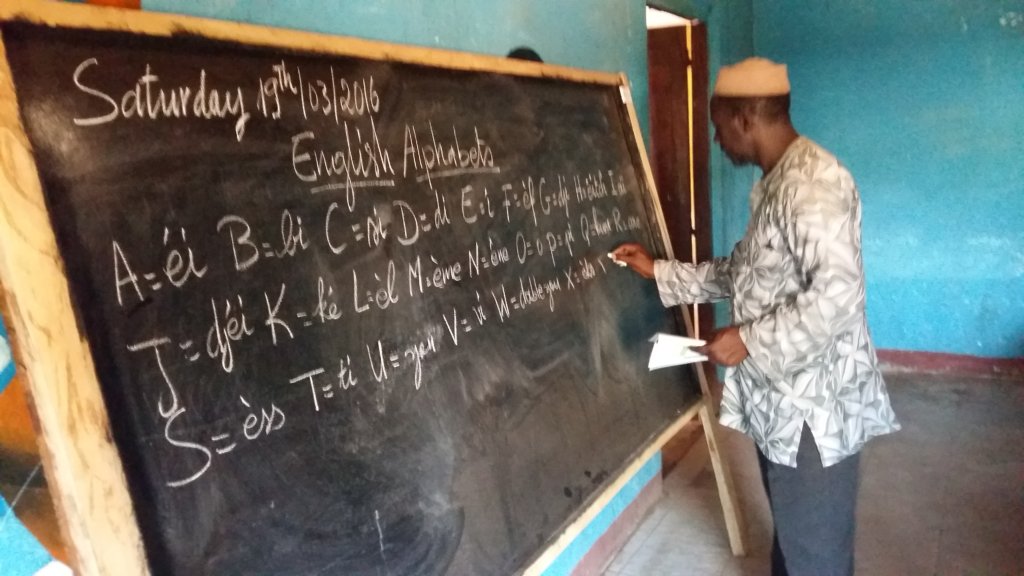 Saturday 19th/03/2016
English Alphabets
A=éi B=bi C=si D=di E=i F=èf G=dji
J=djéi K=ké L=èl M=ème N=ène O=o P=pi
S=èss T=ti U=you V=vi W=double you X=èks